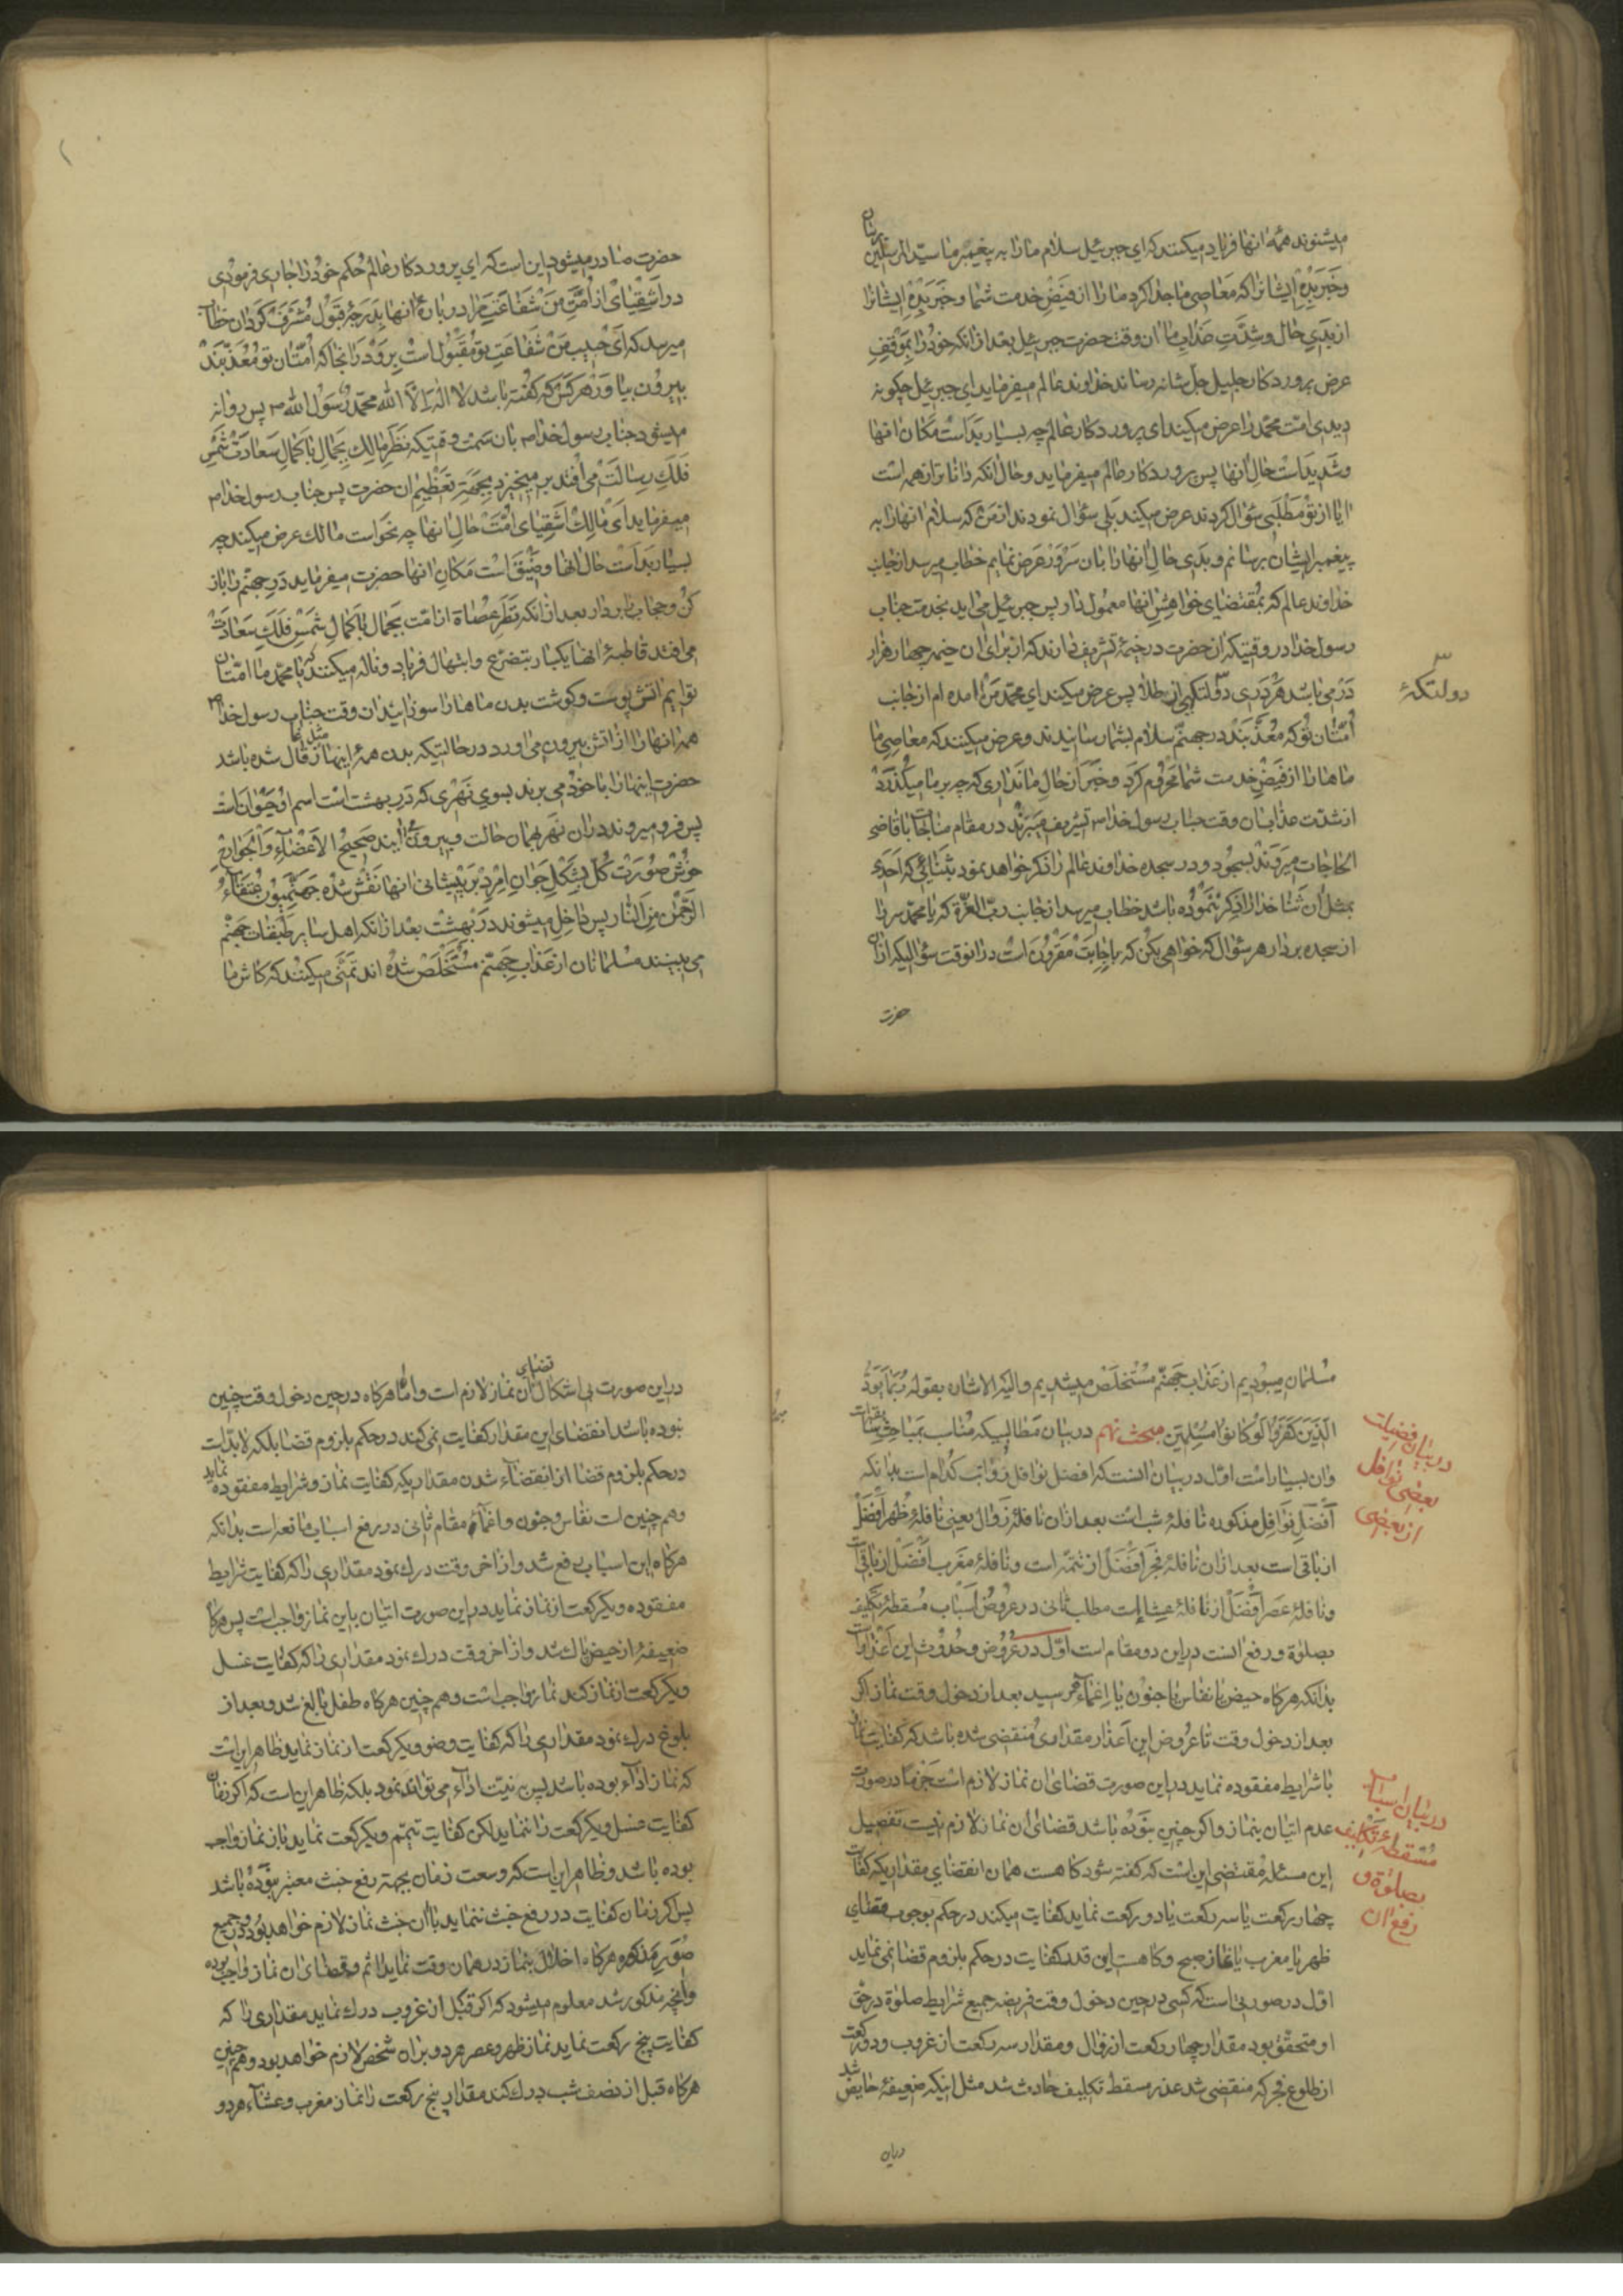 میشنوند همهٔ انها فریاد میکنند که ای جبرئیل سلام ما را به پیغمبر ما سیّد المرسلین برسان
وخَبَر بِدِه ایشانرا که مَعَاصی ما جدا کرد ما را از فیَضِ خدمت شما و خَبَر بِدِه ایشانرا
از بَدیِ حال و شدَّتِ عذابِ ما ان وقت حضرت جبرئیل بعد از انکه خود را بمَوْقِفِ
عرض پروردکار جلیل جلّ شانه رساند خداوند عالم میفرماید ای جبرئیل چکونه
دیدی امّت محمّد را عرض میکند ای پروردکار عالم چه بسیار بَدَ است مَکان انها
وشَدید است حالِ انها پس پروردکار عالم میفرماید و حال انکه دانا تر از همه است
ایا از تو مَطلَبی سؤال کردند عرض میکند بَلی سؤال نمودند از من که سلام انها را به
پیغمبر ایشان برسانم و بدی حالِ انها را بان سَرْوَر عرض نمایم خطاب میرسد از جانب
خداوند عالم که بمُقتضای خواهشِ انها معمول دار پس جبرئیل می اید بخدمت جناب
رسول خدا در وقتیکه ان حضرت در خیمهٔ تشریف دارند که از برای ان خیمه چهار هزار
دَرْ می باشد هر دَری دولتکهٔ از طلا پس عرض میکند ای محمّد مَن امده ام از جانب
دولتکهٔ
اُمّتان تو که مُعذَّبَند در جهنّم سلام بشما رسانیدند و عرض میکنند که معاصی ما
ما ها را از فیَضِ خدمت شما محروم کرَد و خَبَر از حالِ ما نداری که چه بر ما میکُذَرَد
از شدّت عذاب ان وقت جناب رسول خدا ص تشریف میبرند در مقام مناجات با قاضی
الحاجات میروند بسجُود و در سجده خداوند عالم را ذکر خواهد نمود بثنائی که احَدی
بمثلِ ان ثنا خدا را ذکر ننموده باشد خطاب میرسد از جانب ربّ العزّة که یا محمّد سر را
از سجده بردار هر سؤال که خواهی بکن که باِجابَتْ مَقرون است در انوقت سؤالیکه ازان
حضرت
حضرت صادر میشود این است که ای پروردکار عالم حُکم خود را جاری فرمودی
در اَشقِیایْ از اُمّتِ مَن شفاعَتِ مرا در بارهٔ انها بدَرَجهٔ قبَول مُشرَّف کردان خطاب
میرسد که ای حَبیب مَن شفاعَتِ تو مَقبُول است بروْ دَر انجا که اُمّتان تو مُعَذّبَند
بیرون بیاوَر هر کَس که کفته باشد لا اله الّا الله محمّد رسول الله ص پس روانه
میشود جناب رسول خدا ص بان سمت وقتیکه نَظَر مالِک بجَمالِ باکمالِ سَعادت شَمسِ
فَلَکِ رِسالَت می افتد بر میخیزد بجهة تعظیم ان حضرت پس جناب رسول خدا ص
میفرماید ای مالِک اشقیای امّت حالِ انها چه نحو است مالک عرض میکند چه
بسیار بَدَ است حال انها و ضَیّق است مَکانِ انها حضرت میفرماید دَرِ جهنّم را باز
کُن و حجاب بردار بعد از انکه نظر عُصاة از امّت بجمال باکمالِ شَمسِ فلَکِ سَعادت
می افتد قاطبهٔ انها یکبار بتضرّع و ابتهال فریاد و ناله میکنند که یا محمّد ما امّتان
توایم اتش پوست و کوشت بدن ما ها را سوزانید ان وقت جناب رسول خدا ص
همهٔ انها را از اتش بیرون می اورد در حالتیکه بدن همهٔ اینها مثل زقال شده باشد
حضرت اینها را با خود می برند بسوی نَهری که دَرِ بهشت است اسم او حَیَوان است
پس فرو میروند در ان نهر بهمان حالت و بیرون می ایند صَحیحُ الاَعضاءِ وَالجَوارِحِ
خوش صورت کل بشکلِ جَوانِ امرد بَر پیشانی انها نَقش شده جَهَنَّمیّون عُتَقاءُ
الرّحمٰن مِن النّار پس داخِل میشوند در بهشت بعد از انکه اهل سایر طبقات جهنّم
می بینند مُسلمانان از عذاب جهنّم مُستَخلَص شده اند تَمَنّی میکنند که کاش ما
مُسلمان میبودیم از عَذابِ جهنّم مُستَخلَص میشدیم و الیه الاشاره بقوله رُبَما یَوَدُّ
الّذینَ کَفَروا لَوْ کانوا مُسْلِمین مبحث نهم در بیان مَطالبیکه مُناسِب بمَباحِثِ سابقات
در بیان فضیلت
بعضی نوافل
از بعضی
وان بسیار است اوّل در بیان انست که افضل نوافل رَواتِب کُدام است بدانکه
اَفضَلِ نَوافِل مذکوره نافلهٔ شب است بعد ازان نافلهٔ زَوال یعنی نافلهٔ ظُهر اَفضل
از باقی است بعد ازان نافلهٔ فجر اَفضَل از تتمّه است و نافلهٔ مغرب اَفضَل از باقی است
و نافلهٔ عَصر اَفضَل از نافلهٔ عِشا است مطلب ثانی در عُروضِ اَسباب مُسقطهٔ تکلیف
بصلوٰة و رفع انست در این دو مقام است اوّل در عُروض و حُدوث این اَعذار است
بدانکه هر کاه حیض یا نفاس یا جنون یا اِغماء بهم رسید بعد از دخول وقت نماز اکر
بعد از دخول وقت تا عُروض این اَعذار مقداری مُنقضی شده باشد که کفایت نماز
با شرایط مفقوده نماید در این صورت قضای ان نماز لازم است جَزماً در صورت
در بیان اسباب
مُسقطهٔ تکلیف
بصلوٰة و
رفع ان
عدم اتیان بنماز و اکر چنین نبوَده باشد قضای ان نماز لازم نیست تفصیل
این مسئله مُقتضی این است که کفته شود کاه هست همان انقضای مقداریکه کفایت
چهار رکعت یا سه رکعت یا دو رکعت نماید کفایت میکند در حکم بوجوب قضای
ظهر یا مغرب یا نماز صبح و کاه هست این قدر کفایت در حکم بلزوم قضا نمی نماید
اوّل در صورتی است که کسی در حین دخول وقت فریضه جمیع شرایط صلوٰة در حقّ
او متحقّق بود مقدار چهار رکعت از زوال و مقدار سه رکعت از غروب و دو رکعت
از طلوع فجر که منقضی شد عذر مسقط تکلیف حادث شد مثل اینکه ضعیفهٔ حایض شد
دراین
دراین صورت بی اشکال قضای ان نماز لازم است و امّا هر کاه در حین دخول وقت چنین
نبوده باشد انقضای این مقدار کفایت نمی کند در حکم بلزوم قضا بلکه لابدّ است
در حکم بلزوم قضا از انقضاء شدن مقداریکه کفایت نماز و شرایط مفقوده نماید
و هم چنین است نفاس و جنون و اغماء مقام ثانی در رفع اسباب مانعه است بدانکه
هر کاه این اسباب رفع شد و از اخر وقت درک نمود مقداری را که کفایت شرایط
مفقوده و یکرکعت از نماز نماید در این صورت اتیان باین نماز واجب است پس هر کاه
ضعیفهٔ از حیض پاک شد و از اخر وقت درک نمود مقداری را که کفایت غسل
و یکرکعت از نماز کند نماز واجب است و هم چنین هر کاه طفل بالغ شد و بعد از
بلوغ درک نمود مقداری را که کفایت وضو و یکرکعت از نماز نماید ظاهر این است
که نماز اداء بوده باشد پس نیّت اداء می تواند نمود بلکه ظاهر این است که اکر زمان
کفایت غسل و یکرکعت را ننماید لکن کفایت تیمّم و یکرکعت نماید باز نماز واجب
بوده باشد و ظاهر این است که وسعت زمان بجهة رفع خبث معتبر نبوَده باشد
پس اکر زمان کفایت در رفع خبث ننماید با ان خبث نماز لازم خواهد بود و در جمیع
صُوَر مذکوره هر کاه اخلال بنماز در همان وقت نماید اثم و قضای ان نماز واجب بوده
وانچه مذکور شد معلوم میشود که اکر قبل از غروب درک نماید مقداری را که
کفایت پنج رکعت نماید نماز ظهر و عصر هر دو بر ان شخص لازم خواهد بود و هم چنین
هر کاه قبل از نصف شب درک کند مقدار پنج رکعت را نماز مغرب و عشاء هر دو